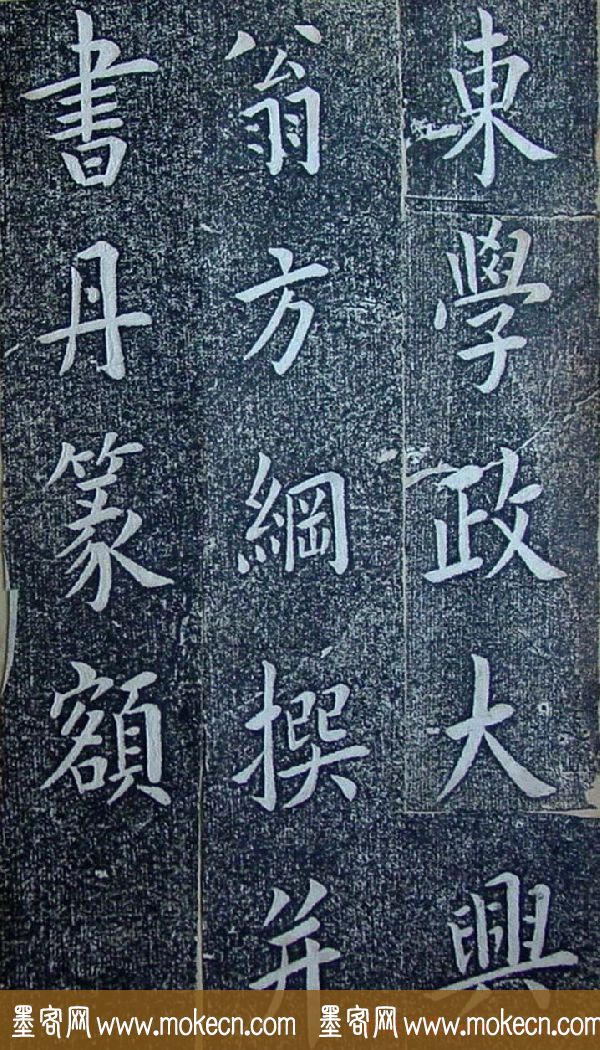 東學政大興
翁方綱撰并
書丹篆額
墨客网 www.mokecn.com 墨客网 www.mokecn.com